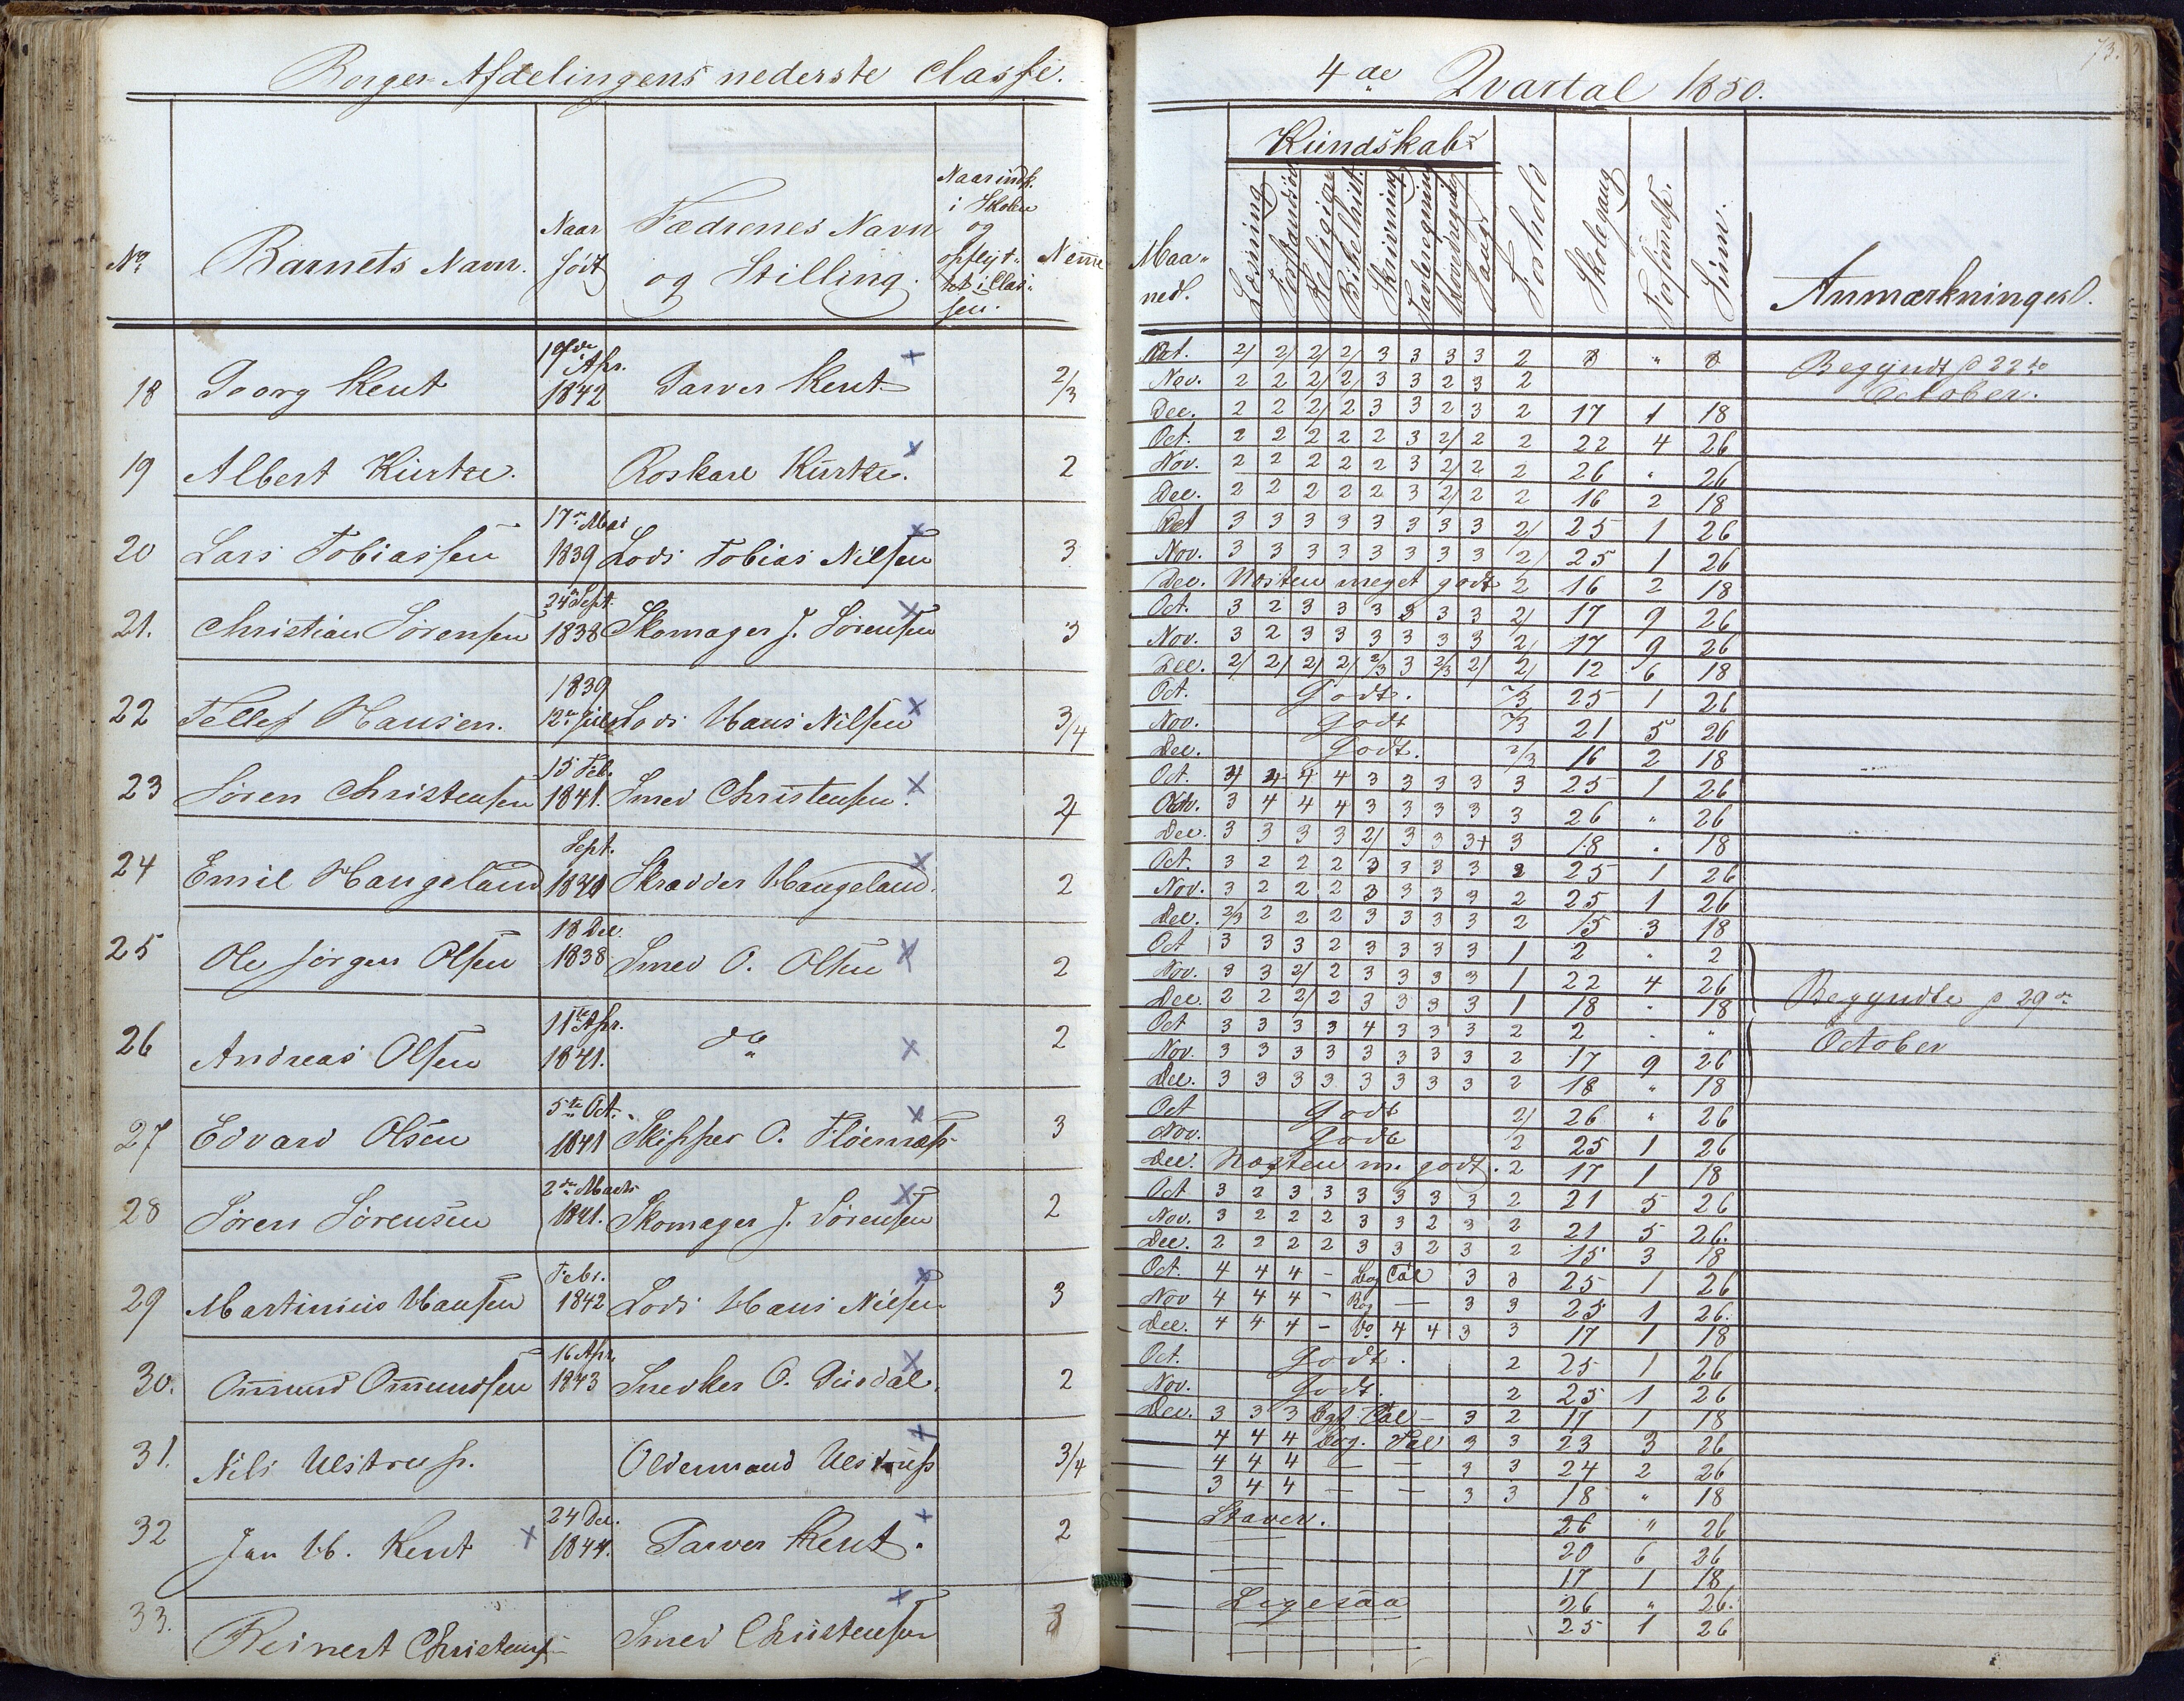 Borger Afdelingens nederste Classe.
No. Barnets Navn. Naar født Fædrenes Navn og Stilling. Naar indk. i Skolen og opflyt- tet i Clas- sen. Nemme
18 Georg Kent 19de Apr. 1842 Farver Kent + 2/3
19 Albert Kürtze. Roskarl Kürtze. x 2
20 Lars Tobiassen 17de Mai 1839 Lods Tobias Nilsen x 3
21. Christian Sørensen 24de Sept. 1838 Skomager J. Sørensen x 3
22 Tellef Hansen. 1839 12te Juli Lods Hans Nilsen x 3/4
23 Søren Christensen 15 Feb. 1841. Smed Christensen. x 4
24 Emil Haugeland Sept. 1840 Skrædder Haugeland. x 2
25 Ole Jørgen Olsen 18 Dec. 1838 Smed O. Olsen x 2
26 Andreas Olsen 11te Apr. 1841. do x 2
27 Edvard Olsen 5te Oct. 1841 Skipper O. x 3
28 Søren Sørensen 2den Marts 1841. Skomager J. Sørensen x 2
29 Martinius Hansen Febr. 1842 Lods Hans Nilsen x 3
30. Omund Omundsen 16 Apr. 1843 Snedker O. x 2
31. Nils Ulstrup. Oldermand Ulstrup + 3/4
32 Jan W. Kent x 24 Dec. 1844. Farver Kent. + 2
33. Reinert Christens Smed Christensen x 3
73.
4de Qvartal 1850.
Kundskab
Maa- ned. Læsning Forstandsøv Religion Bibelhist. Skrivning Tavleregning Hovedregn Sang Forhold Skolegang Forsømte. Sum. Anmærkninger.
Oct. 2/ 2/ 2/ 2/ 3 3 3 3 2 8 " 8 Begyndt d 22de
Nov. 2 2 2/ 2/ 3 3 2 3 2 October.
Dec. 2 2 2/ 2 3 3 2 3 2 17 1 18
Oct. 2 2 2 2 2 3 2/ 2 2 22 4 26
Nov. 2 2 2 2 2 3 2/ 2 2 26 " 26
Dec. 2 2 2 2 2 3 2/ 2 2 16 2 18
Oct 3 3 3 3 3 3 3 3 2/ 25 1 26
Nov. 3 3 3 3 3 3 3 3 2/ 25 1 26
Dec. Næsten meget godt 2 16 2 18
Oct. 3 2 3 3 3 3 3 3 2/ 17 9 26
Nov. 3 2 3 3 3 3 3 3 2/ 17 9 26
Dec. 2/ 2/ 2/ 2/ 2/3 3 2/3 2/ 2/ 12 6 18
Oct. Godt. 2/3 25 1 26
Nov. Godt 2/3 21 5 26
Dec. Godt. 2/3 16 2 18
Oct. 4 4 4 4 3 3 3 3 3 25 1 26
Nov. 3 4 4 4 3 3 3 3 3 26 " 26
Dec. 3 3 3 3 2/ 3 3 3+ 3 18 " 18
Oct. 3 2 2 2 3 3 3 3 2 25 1 26
Nov. 3 2 2 2 3 3 3 3 2 25 1 26
Dec. 2/3 2 2 2 3 3 3 3 2 15 3 18
Oct 3 3 3 2 3 3 3 3 1 2 " 2
Nov. 3 3 2/ 2 3 3 3 3 1 22 4 26
Dec. 2 2 2/ 2 3 3 3 3 1 18 " 18 Begyndte d 29de
Oct 3 3 3 3 4 3 3 3 2 2 " " October
Nov. 3 3 3 3 3 3 3 3 2 17 9 26
Dec. 3 3 3 3 3 3 3 3 2 18 " 18
Oct Godt 2/ 26 " 26
Nov. Godt 2 25 1 26
Dec. Næsten m. godt. 2 17 1 18
Oct 3 2 3 3 3 3 3 3 2 21 5 26
Nov. 3 2 2 2 3 3 2 3 2 21 5 26.
Dec. 2 2 2 2 3 3 2 3 2 15 3 18
Oct. 4 4 4 - Bog Tal 3 3 25 1 26
Nov 4 4 4 - Bog — 3 3 25 1 26.
Dec. 4 4 4 - Do 4 4 3 3 17 1 18
Oct. Godt. 2 25 1 26
Nov. Godt. 2 25 1 26
Dec. 3 3 3 Bgst. Tal - 3 2 17 1 18
4 4 4 Bog. Tal 3 3 23 3 26
4 4 4 — — 3 3 24 2 26
3 4 4 — — 3 3 18 " 18
Staver. 26 " 26
— 20 6 26
— 17 1 18
Ligesaa 26 " 26.
— 25 1 26